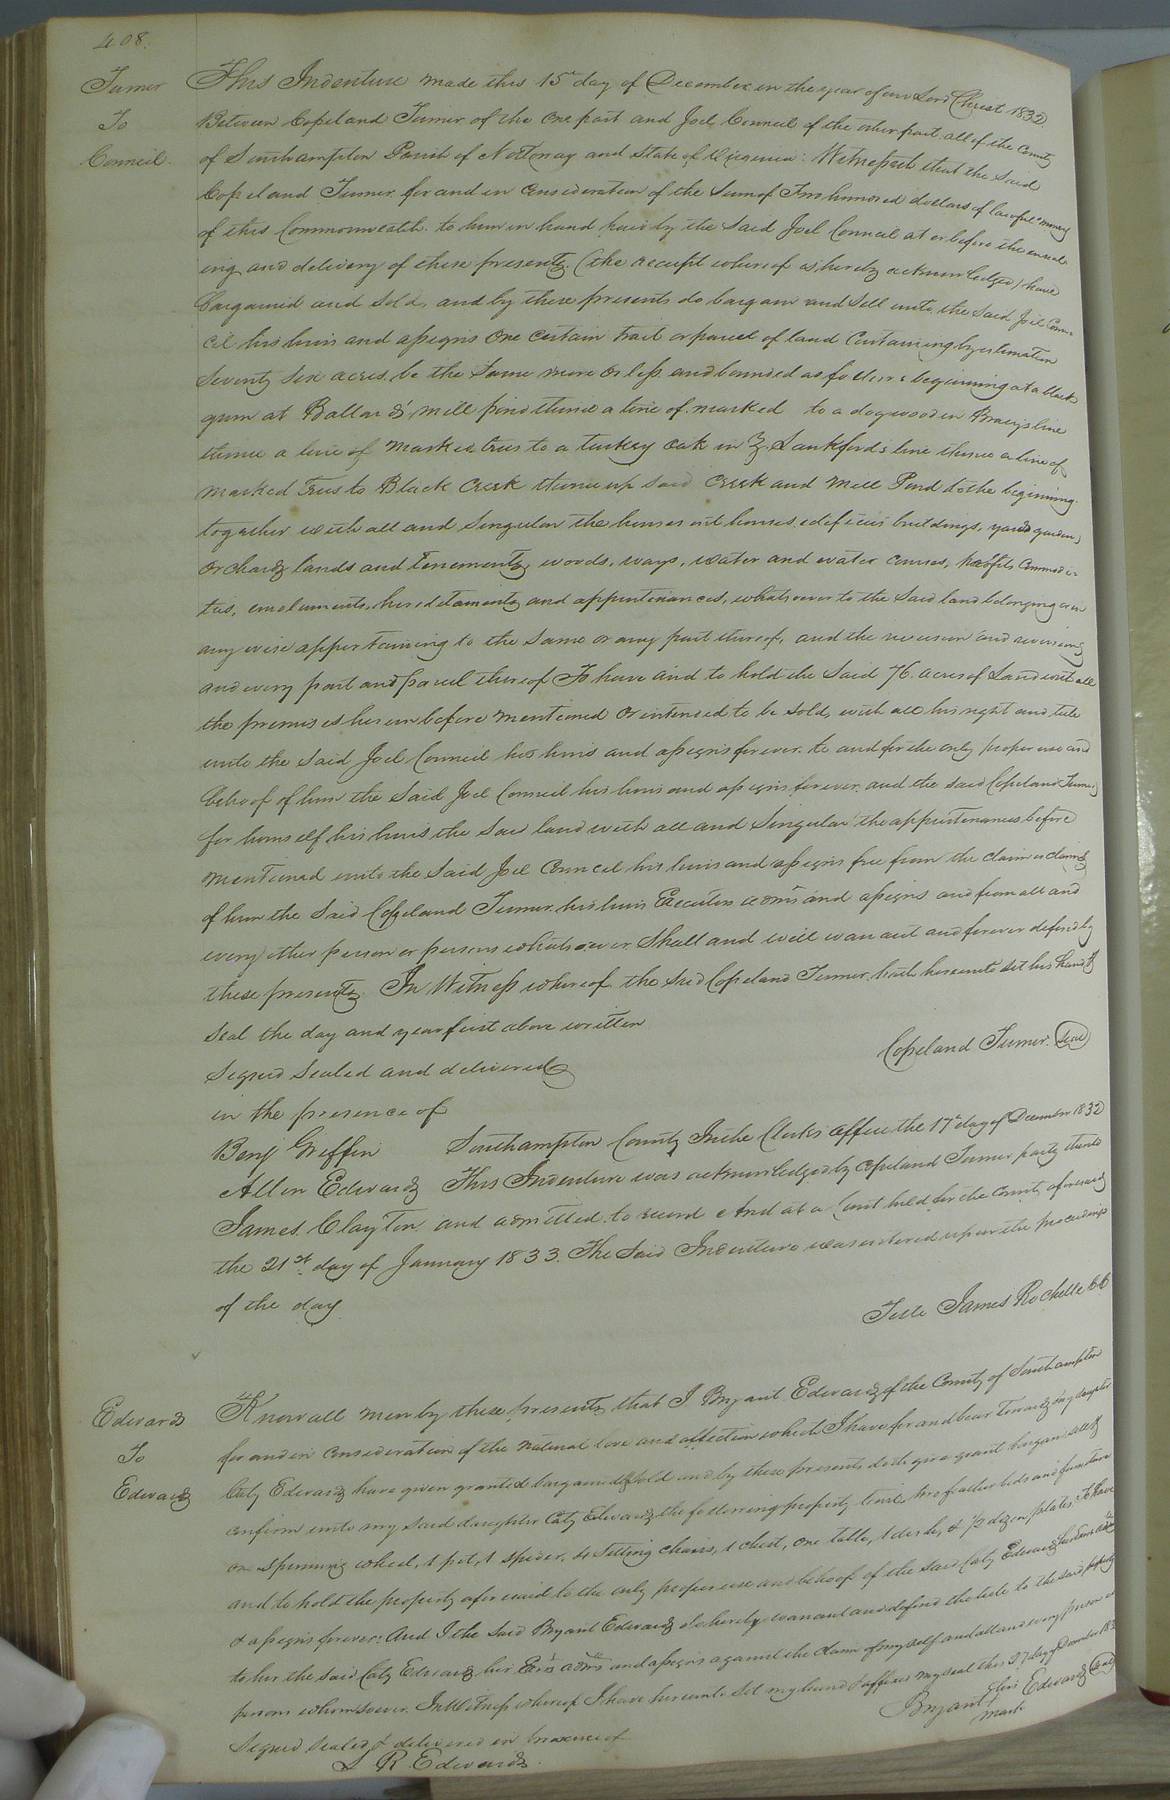 408.
Turner
To
Council.
This Indenture made this 15th day of December in the year of our Lord Christ 1832
Between Copeland Turner of the one part and Joel Council of the other part, all of the County
of Southampton Parish of Nottoway and State of Virginia: Witnesseth that the Said
Copeland Turner for and in Consideration of the Sum of hundred dollars of lawful money
of this Commonwealth to him in hand paid by the Said Joel Council at or before the enseal
ing and delivery of these presents (the receipt whereof is hereby acknowledged) have
bargained and Sold, and by these presents do bargain and Sell unto the Said Joel Coun-
cil his heirs and assigns One Certain tract or parcel of land Containing by estimation
Seventy Six acres, be the Same more or less and bounded as follows beginning at a black
gum at Ballard's mill pond thence a line of marked to a dogwood in line
thence a line of Marked trees to a turkey oak in line thence a line of
marked Trees to Black Creek thence up said Creek and Mill Pond to the beginning.
together with all and Singular the houses out houses, edifices buildings, yards gardens,
Orchards lands and tenements, woods, ways, water and water courses, profits Commodi-
ties, emoluments, hereditaments and appurtenances, whatsoever to the Said land belonging or in
any wise appertaining to the Same or any part thereof, and the reversion and reversions
and every part and parcel thereof To have and to hold the Said 76 acres of Land with all
the premises herein before mentioned Or intended to be Sold, with all his right and title
unto the Said Joel Council his heirs and assigns forever. to and for the only proper use and
behoof of him the Said Joel Council his heirs and assigns forever. and the said Copeland Turner
for himself his heirs the Said land with all and Singular the appurtenances before
mentioned unto the Said Joel Council his heirs and assigns free from the claim or claims
of him the Said Copeland Turner, his heirs Executors adms and assigns and from all and
every other person or persons whatsoever Shall and will warrant and forever defend by
these presents. In Witness whereof the Said Copeland Turner hath hereunto set his hand &
Seal the day and year first above written
Copeland Turner. Seal
Signed Sealed and delivered
in the presence of
Benj Griffin
Allen Edwards
James Clayton
Southampton County In the Clerks office the 17th day of December 1832
This Indenture was acknowledged by Copeland Turner party thereto
and admitted to record And at a Court held for the County aforesaid
the 21st day of January 1833. The Said Indenture was entered upon the proceedings
of the day
Teste James Rochelle CC
Edwards
To
Edwards
Know all men by these presents that I Bryant Edwards of the County of Southampton
for and in Consideration of the natural love and affection which I have for and bear towards my daughter
Caty Edwards have given granted bargained & sold and by these presents doth give grant bargain sell &
confirm unto my said daughter Caty Edwards the following property two feather beds and furniture
one Spinning wheel, 1 pot, 1 Spider, 4 Sitting chairs, 1 chest, one table, 1 & 1/2 dozen plates. To have
and to hold the property aforesaid to the only proper use and behoof of the Said Caty Edwards
& assigns forever: And I the Said Bryant Edwards do hereby warrant and defend the title to the said property
to her the said Caty Edwards her Exrs adms and assigns against the claim of myself and all and every person or
persons whomsoever. In Witness whereof I have hereunto Set my hand & affixed my seal this 27 day of December
Bryant his Edwards Seal
mark
Signed Sealed & delivered in presence of
R. Edwards.